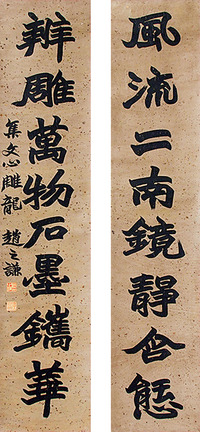 風流二南鏡靜含態
辨雕萬物石墨鐫華
集文心雕龍 趙之謙